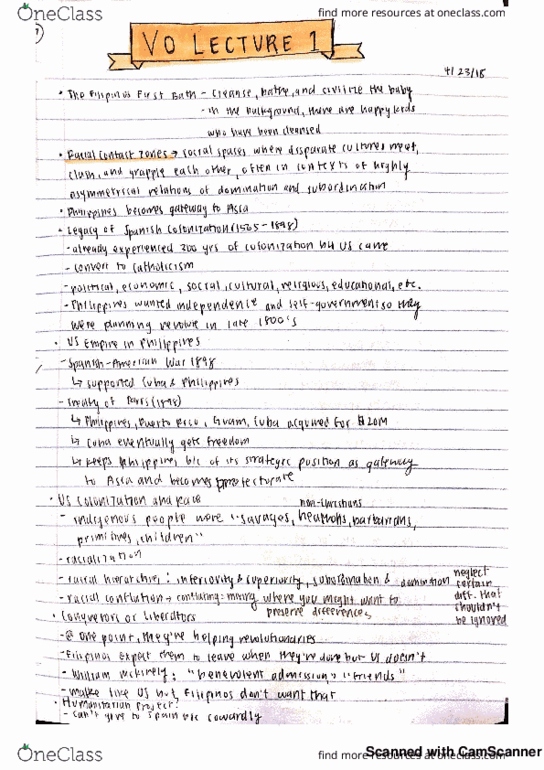 OneClass
find more resources at oneclass.com
VO LECTURE 1
4/23/18
• The Filipinos First Bath - Cleanse, bathe, and civilize the baby
- in the background, there are happy kids
who have been cleansed
• Racial Contact Zones → social spaces where disparate cultures meet,
clash, and grapple each other, often in contexts of highly
asymmetrical relations of domination and subordination
• Philippines becomes gateway to Asia
• Legacy of Spanish Colonization (1565-1898)
- already experienced 300 yrs of colonization b4 US came
- convert to Catholicism
- political, economic, social, cultural, religious, educational, etc.
- Philippines wanted independence and self-government so they
were planning revolve in late 1800's
• US Empire in Philippines
- Spanish-American War 1898
↳ supported Cuba & Philippines
- Treaty of Paris (1898)
↳ Philippines, Puerto Rico, Guam, Cuba acquired for $20M
↳ Cuba eventually gets freedom
↳ keeps Philippines b/c of its strategic position as gateway
to Asia and becomes
• US Colonization and Race
non-Christians
- indigenous people were "savages, heathens, barbarians,
primitives, children"
- racialization
- racial hierarchies: inferiority & superiority, subordination & domination
- racial conflation + conflating: mixing where you might want to
preserve differences
neglect
certain
diff. that
shouldn't
be ignored
• Conquerors or Liberators
- @ one point, they're helping revolutionaries
- Filipinos expect them to leave when they're done but US doesn't
- William McKinely: "benevolent" "friends"
- make like US not, Filipinos don't want that
• Humanitarian Project?
- Can't give to Spain b/c cowardly
OneClass
find more resources at oneclass.com
Scanned with CamScanner